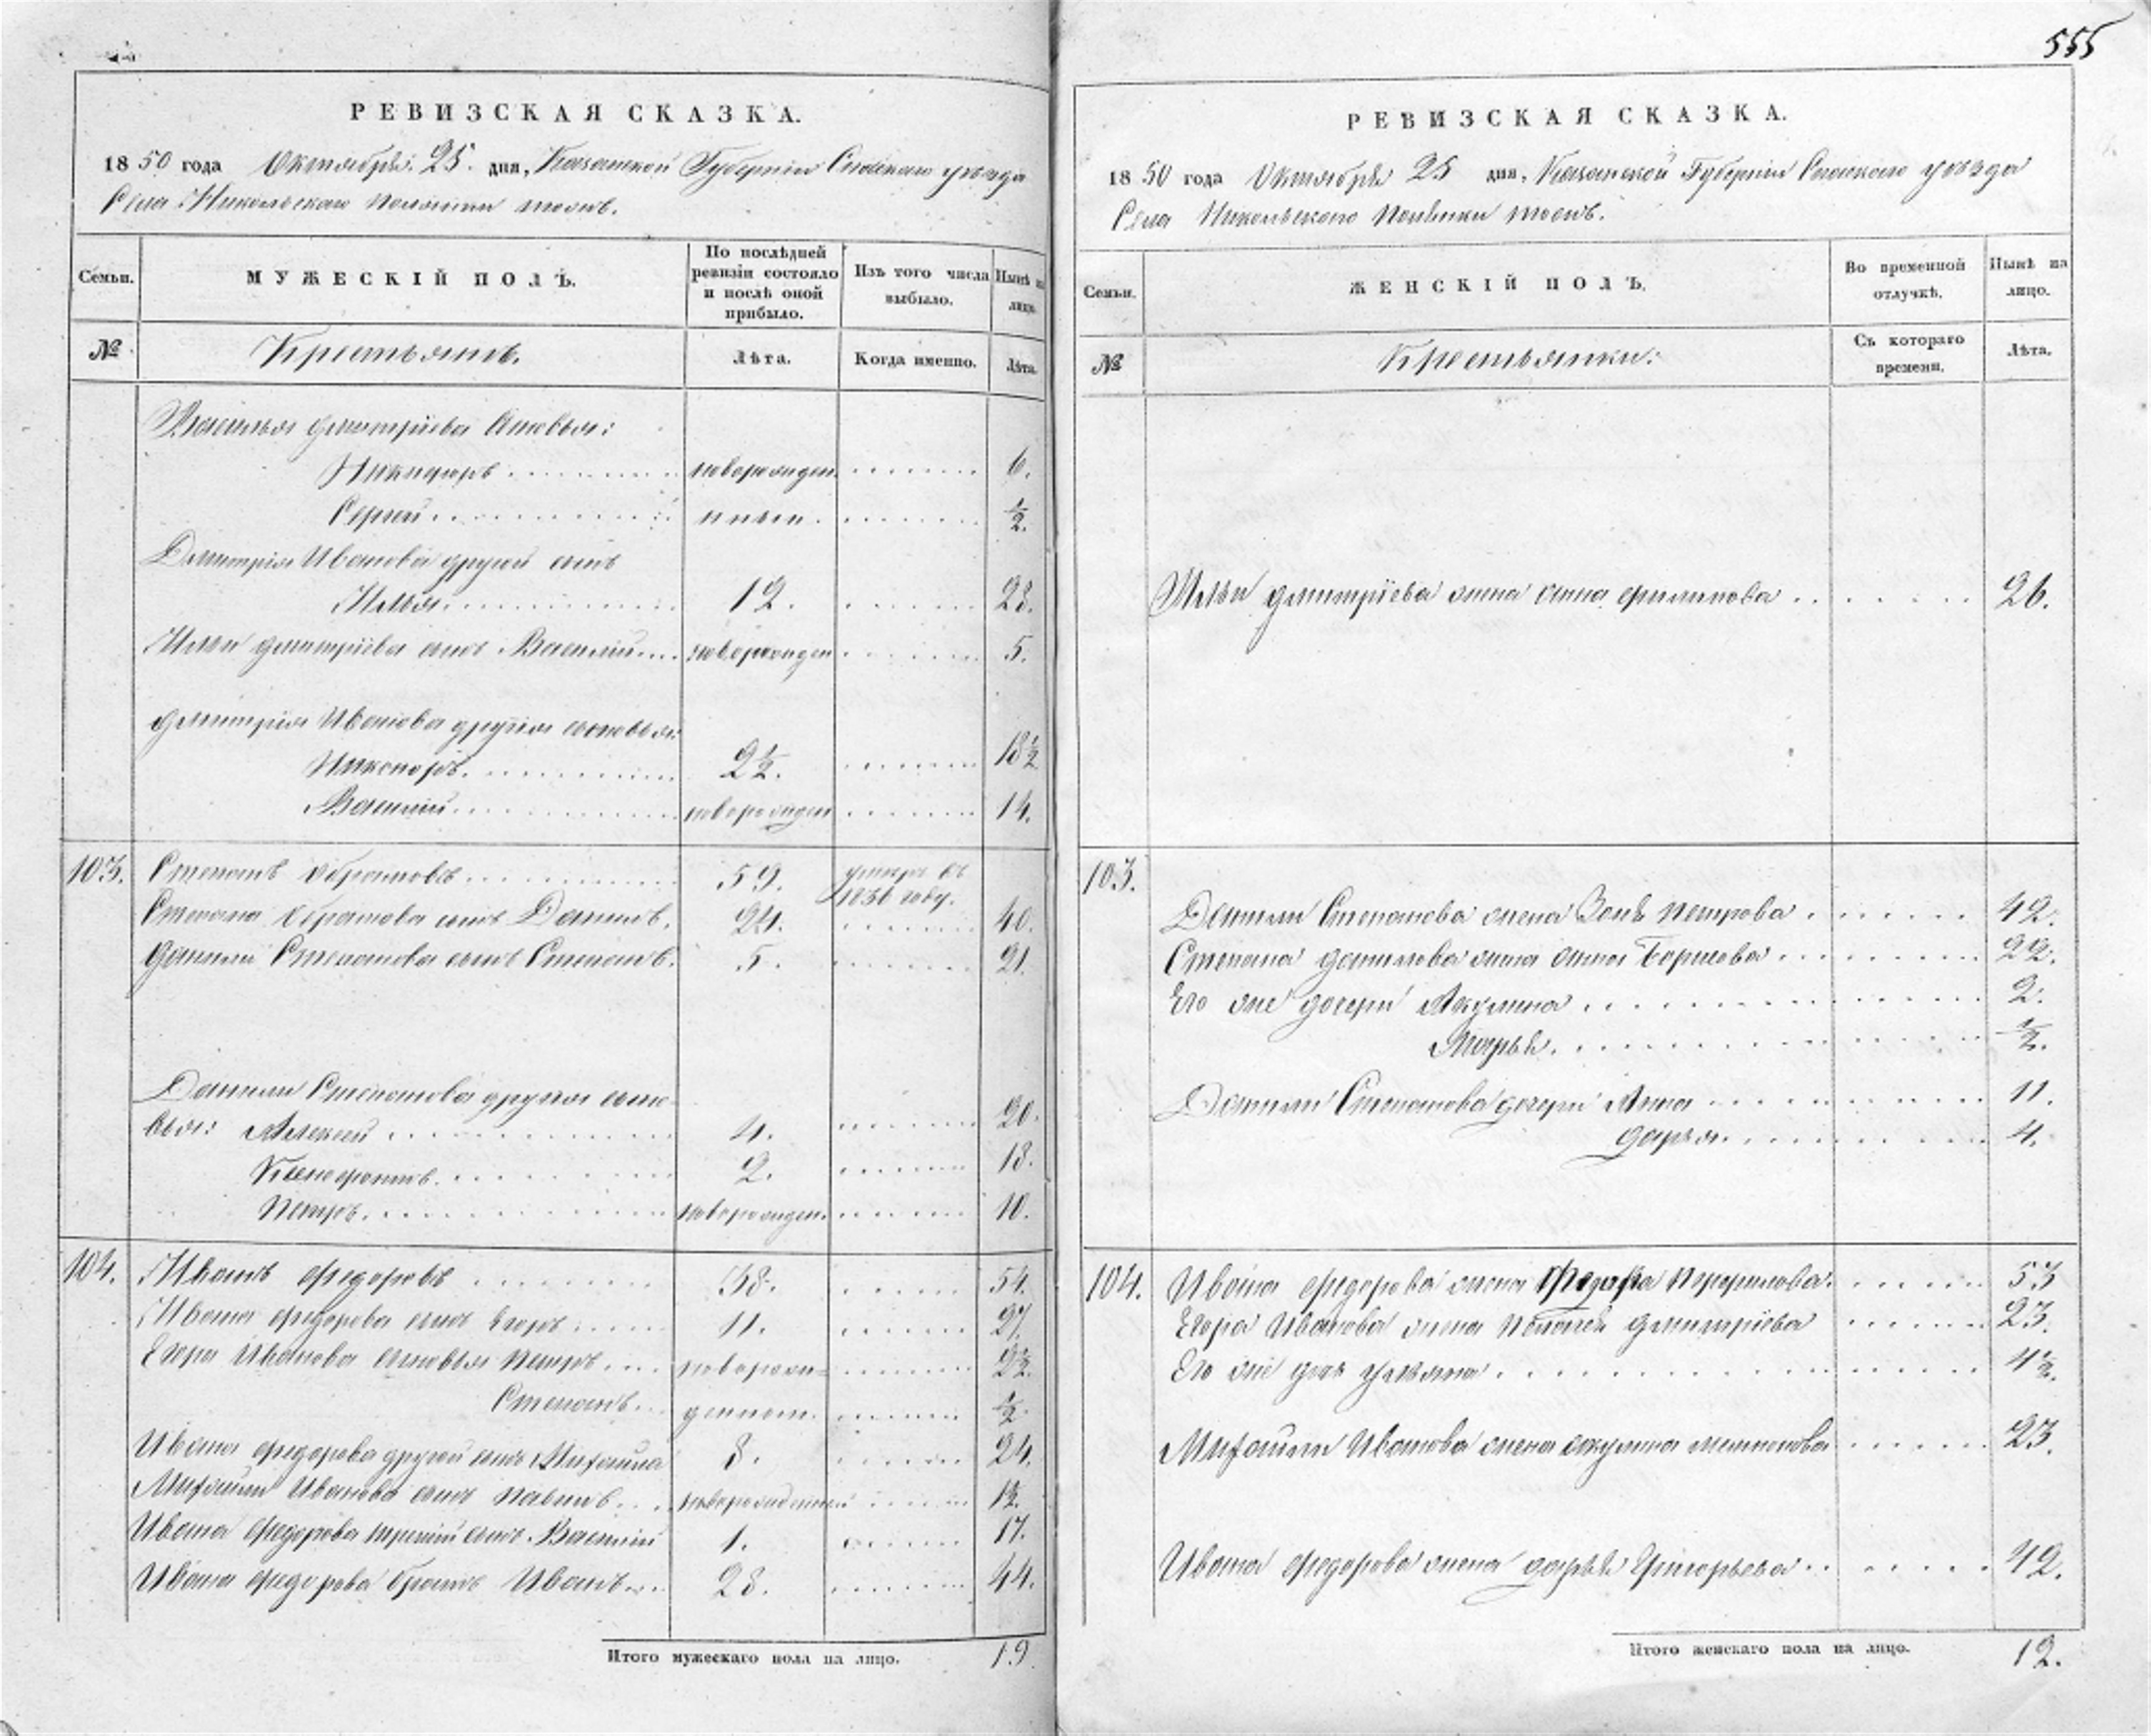 555
РЕВИЗСКАЯ СКАЗКА.
1850 года Октября 25. дня, Казанской Губерніи Спаскаго уѣзда
Села Никольскаго тожъ.
Семьи. МУЖЕСКІЙ ПОЛЪ. По послѣдней ревизіи состояло и послѣ оной прибыло. Изъ того числа выбыло. Нынѣ на лицо.
№ Крестьянъ. Лѣта. Когда именно. Лѣта.
Василья Дмитріева сыновья:
Никифоръ новорожден. 6.
Сергей 1/2.
Дмитрія Иванова другой сынъ
Илья 12. 28.
Ильи Дмитріева сынъ Василий новорожден 5.
Дмитрія Иванова другия сыновья:
Никоноръ 2 1/2. 18 1/2
Василий новорожден 14.
103. Степанъ Абрамовъ 59. умеръ въ 1836 году.
Степана Абрамова сынъ Данилъ. 24. 40.
Данилы Степанова сынъ Степанъ. 5. 21.
Данилы Степанова другия сыно-
вья: Алексей 4. 20.
Ксенофонтъ. 2. 18.
Петръ. новорожден. 10.
104. Иванъ Федоровъ 38. 54.
Ивана Федорова сынъ Егоръ 11. 27.
Егора Иванова сыновья Петръ новорож- 2 1/2.
Степанъ денные. 1/2.
Ивана Федорова другой сынъ Михайла 8. 24.
Михайлы Иванова сынъ Павелъ новорожденный 1 1/2.
Ивана Федорова третий сынъ Василий 1. 17.
Ивана Федорова братъ Иванъ 28. 44.
Итого мужескаго пола на лицо. 19
РЕВИЗСКАЯ СКАЗКА.
1850 года Октября 25 дня, Казанской Губерніи Спаскаго уѣзда
Села Никольскаго тожъ.
Семьи. ЖЕНСКІЙ ПОЛЪ. Во временной отлучкѣ. Нынѣ на лицо.
№ Крестьянки: Съ котораго времени. Лѣта.
Ильи Дмитріева жена Анна Филипова 26.
103.
Данилы Степанова жена Петрова 42.
Степана Данилова жена Анна Борисова 22.
Его же дочери Акулина 2.
Марья. 1/2.
Данилы Степанова дочери Анна 11.
Дарья. 4.
104. Ивана Федорова жена 53
Егора Иванова жена Пелагея Дмитріева 23.
Его же дочь Ульяна 4 1/2.
Михайлы Иванова жена Акулина 23.
Ивана Федорова жена Дарья Григорьева 42.
Итого женскаго пола на лицо. 12.